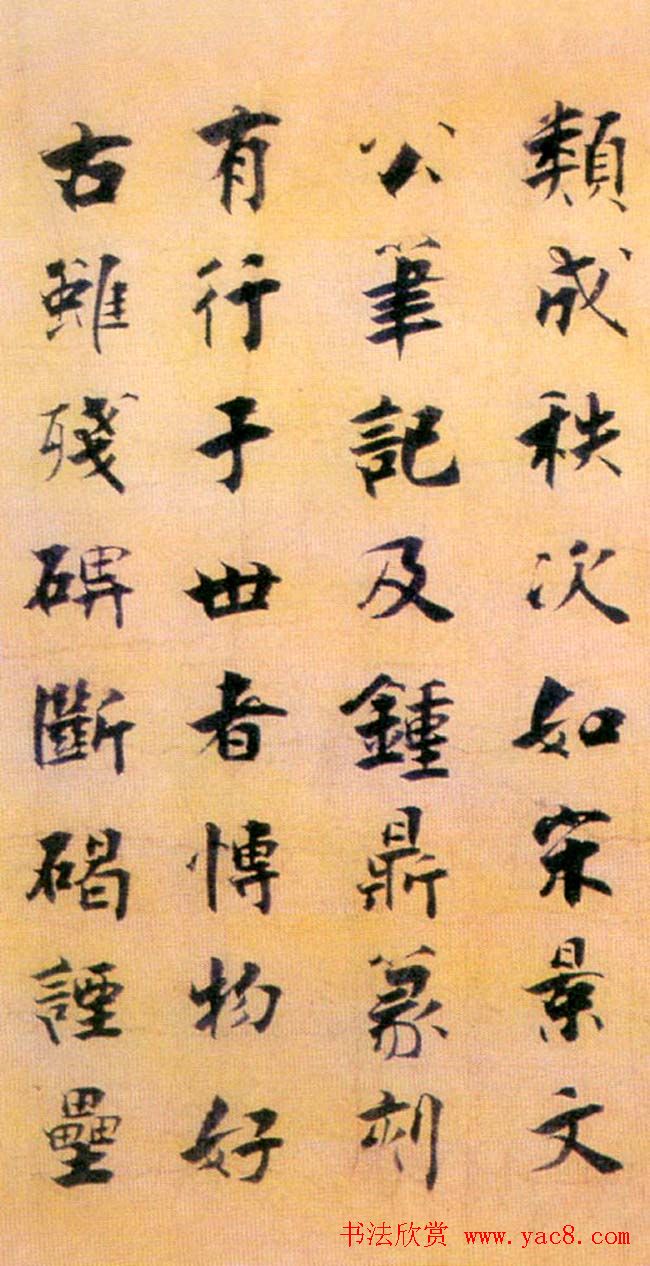 類成秩次如宋景文
公筆記及鍾鼎篆刻
有行于世者博物好
古雖殘碑斷碣諲壘
书法欣赏 www.yac8.com